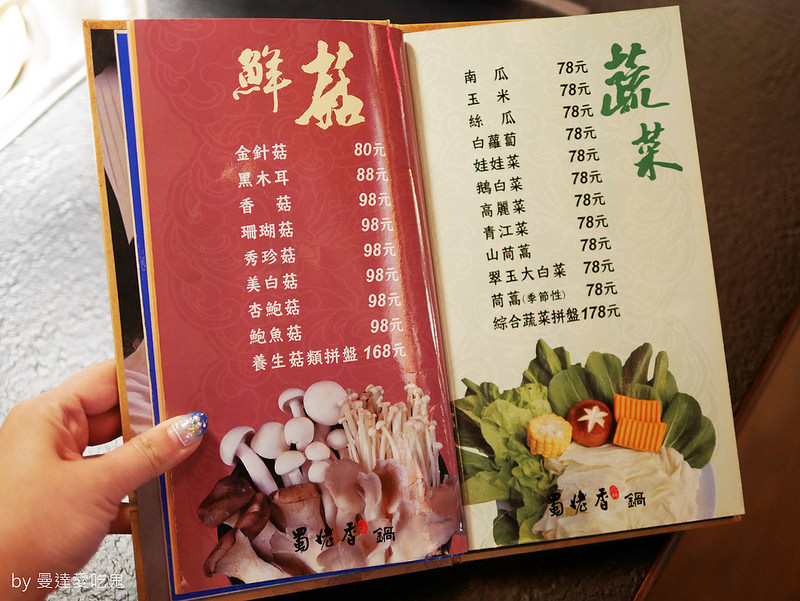 鮮菇
金針菇 80元
黑木耳 88元
香菇 98元
珊瑚菇 98元
秀珍菇 98元
美白菇 98元
杏鮑菇 98元
鮑魚菇 98元
養生菇類拼盤 168元
蜀姥香 鍋
蔬菜
南瓜 78元
玉米 78元
絲瓜 78元
白蘿蔔 78元
娃娃菜 78元
鵝白菜 78元
高麗菜 78元
青江菜 78元
山茼蒿 78元
翠玉大白菜 78元
茼蒿(季節性) 78元
綜合蔬菜拼盤178元
蜀姥香 鍋
by 曼達愛吃鬼